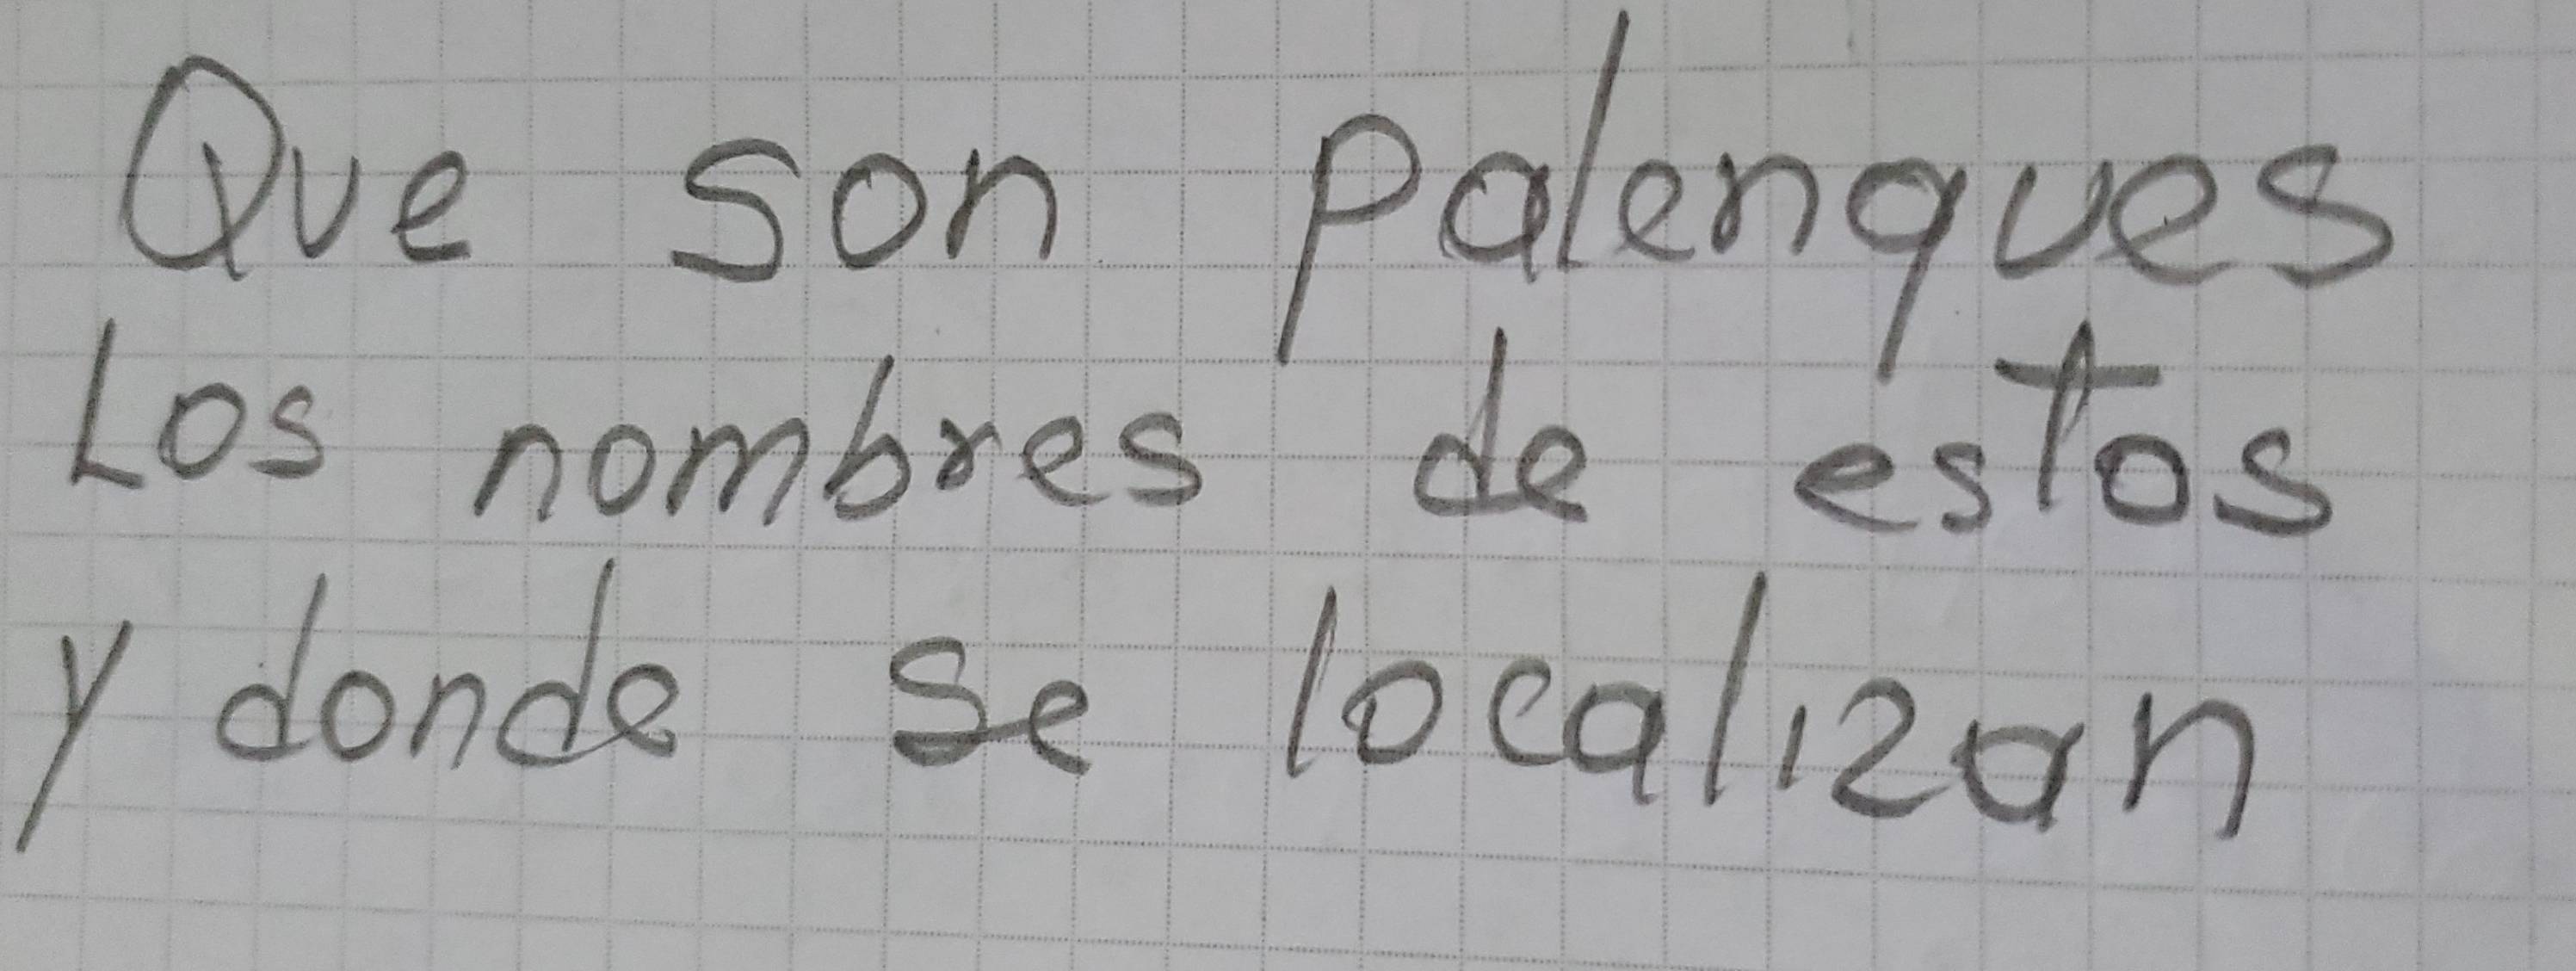 Que son palenques
Los nombres de estos
y donde se localizan